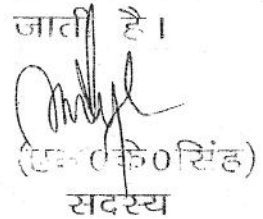 जाती है।
(एस0के0सिंह)
सदस्य